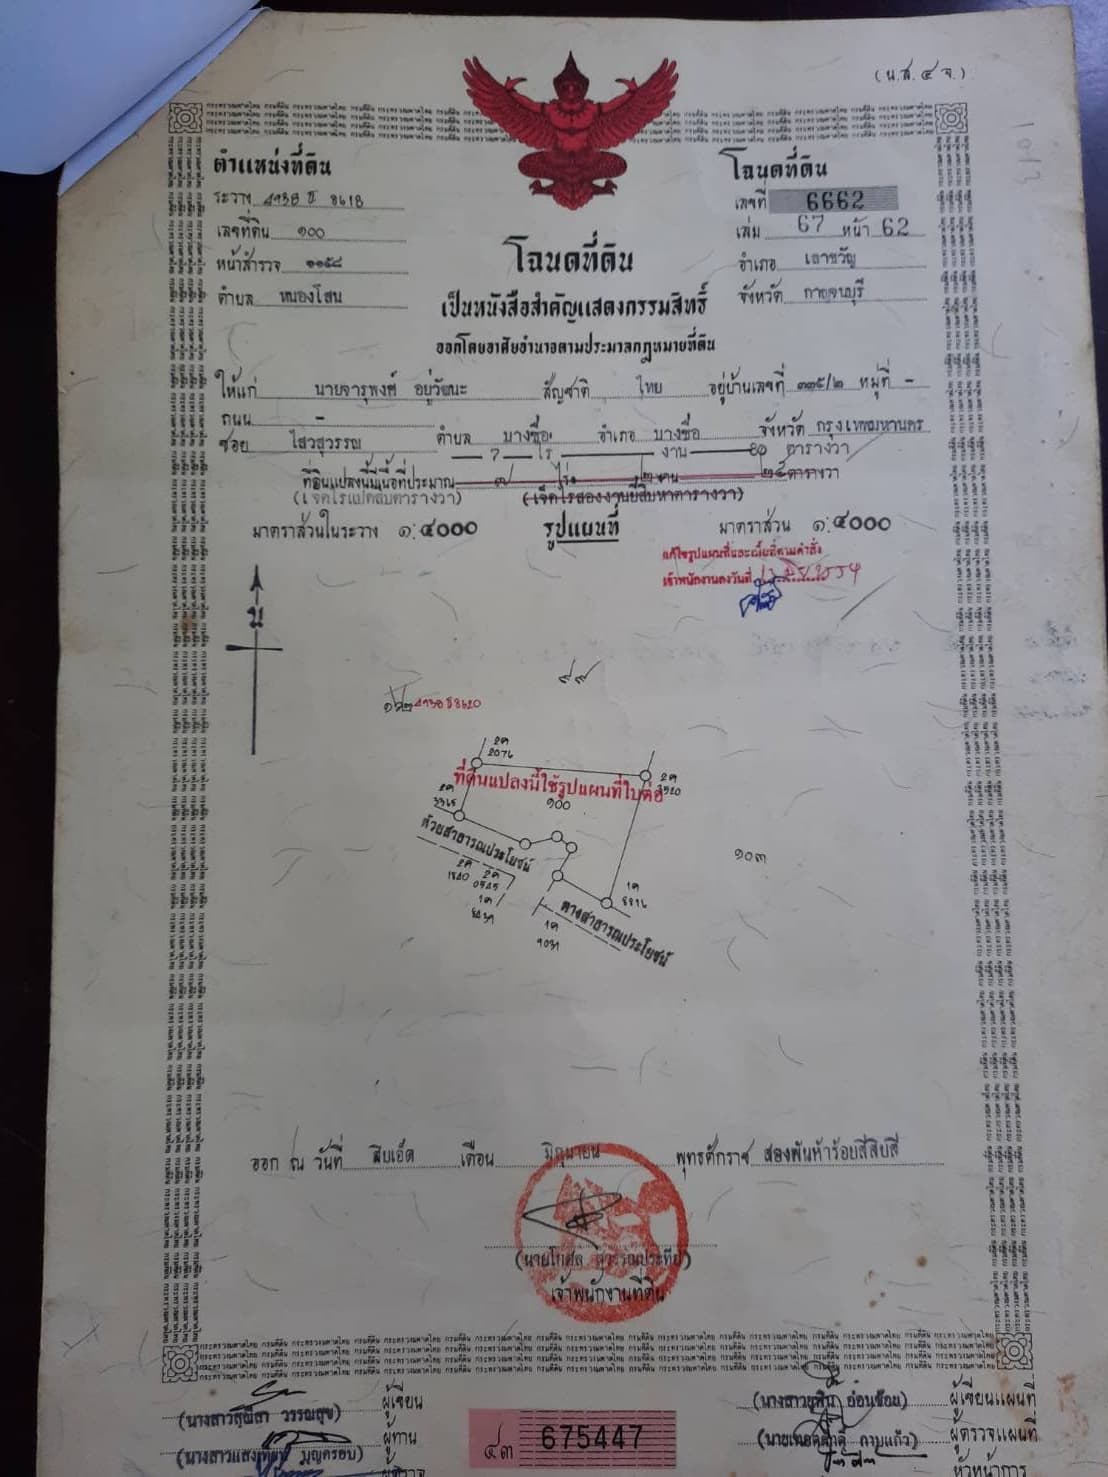 (น.ส. ๔ จ.)
ตำแหน่งที่ดิน
โฉนดที่ดิน
ระวาง 4938 II 8618
เลขที่ 6662
เลขที่ดิน ๑๐๐
เล่ม 67 หน้า 62
หน้าสำรวจ ๑๑๕๘
อำเภอ เลาขวัญ
ตำบล หนองโสน
จังหวัด กาญจนบุรี
โฉนดที่ดิน
เป็นหนังสือสำคัญแสดงกรรมสิทธิ์
ออกโดยอาศัยอำนาจตามประมวลกฎหมายที่ดิน
ให้แก่ นายจารุพงศ์ อยู่วัฒนะ สัญชาติ ไทย อยู่บ้านเลขที่ ๓๓๕/๒ หมู่ที่ -
ถนน -
ซอย ไสวสุวรรณ ตำบล บางซื่อ อำเภอ บางซื่อ จังหวัด กรุงเทพมหานคร
7 ไร่ - งาน 80 ตารางวา
ที่ดินแปลงนี้มีเนื้อที่ประมาณ ๗ ไร่ ๒ งาน ๒๕ ตารางวา
(เจ็ดไร่แปดสิบตารางวา) (เจ็ดไร่สองงานยี่สิบห้าตารางวา)
มาตราส่วนในระวาง ๑:๔๐๐๐ รูปแผนที่ มาตราส่วน ๑:๔๐๐๐
แก้ไขรูปแผนที่และเนื้อที่ตามคำสั่ง
เจ้าพนักงานลงวันที่
น
4938 II 8620
2ค
2076
ที่ดินแปลงนี้ใช้รูปแผนที่ใบต่อ
2ค
๑๐๐
2ค
ห้วยสาธารณประโยชน์
๑๐๓
2ค 2ค
1ค
1ค
ทางสาธารณประโยชน์
1ค
ออก ณ วันที่ สิบเอ็ด เดือน มิถุนายน พุทธศักราช สองพันห้าร้อยสี่สิบสี่
(นายโกศล สุวรรณประทีป)
เจ้าพนักงานที่ดิน
ผู้เขียน
วรรณสุข)
ผู้ทาน
บุญครอบ)
๔๓ 675447
ผู้เขียนแผนที่
อ่อนช้อย)
ผู้ตรวจแผนที่
กาบแก้ว)
หัวหน้าการ